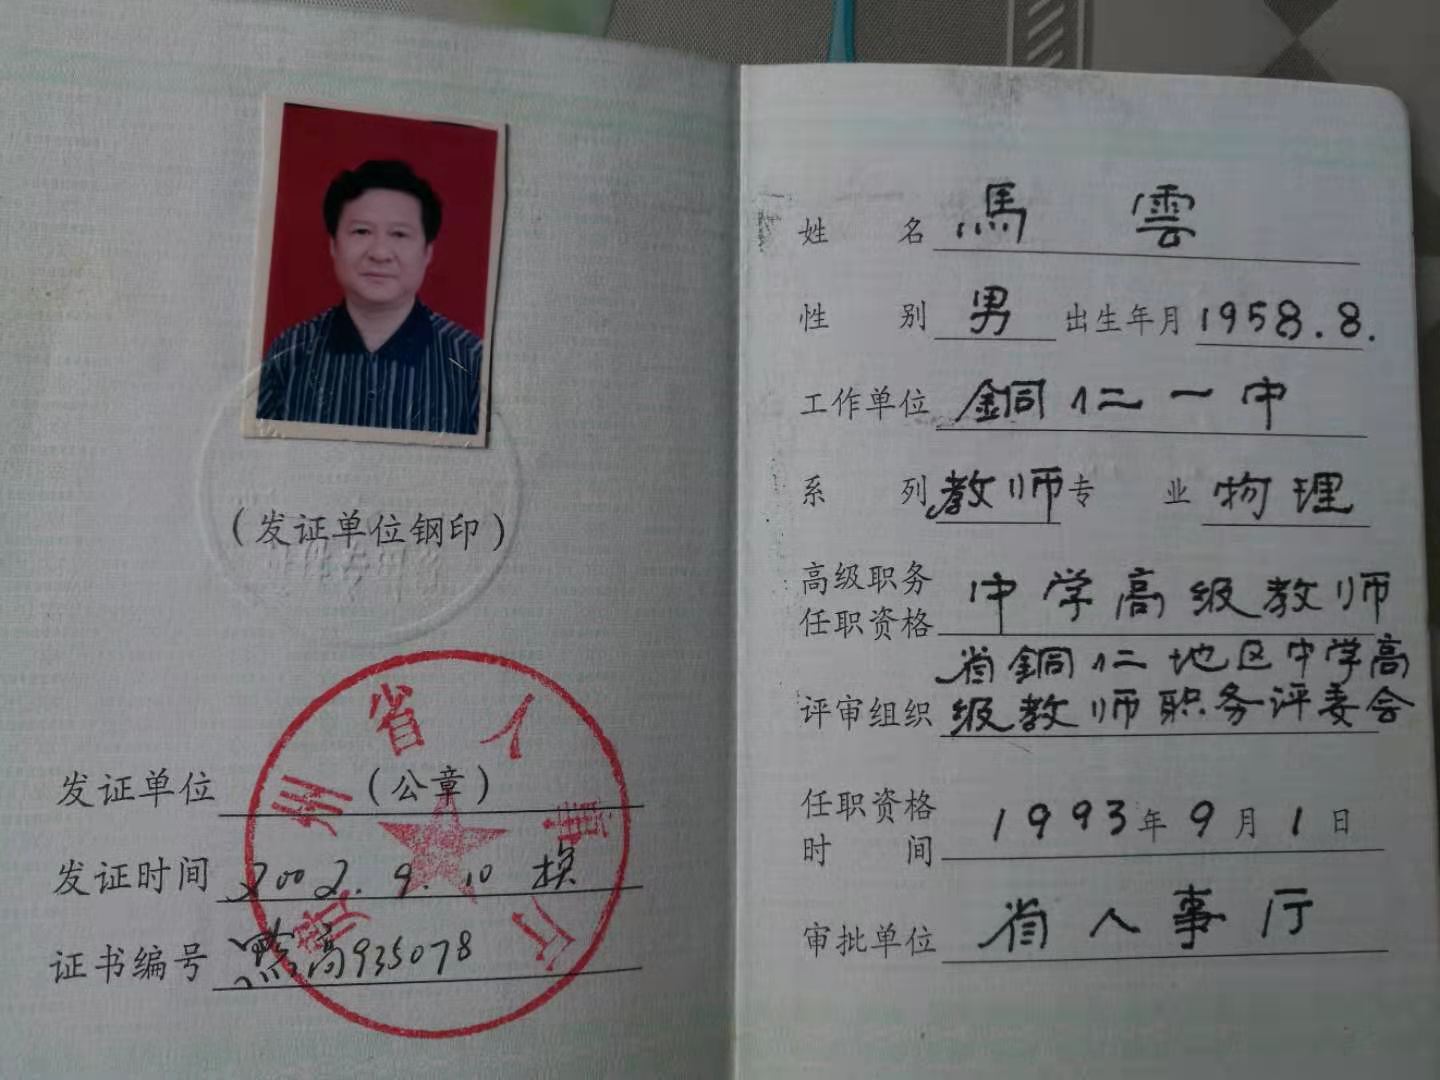 (发证单位钢印)
贵州省人事厅
发证单位 (公章)
发证时间 2002.9.10换
证书编号 黔高935078
姓 名 馬 雲
性 别 男 出生年月 1958.8.
工作单位 銅仁一中
系 列 教师 专 业 物理
高级职务
任职资格 中学高级教师
省銅仁地区中学高
评审组织 级教师职务评委会
任职资格
时 间 1993年9月1日
审批单位 省人事厅